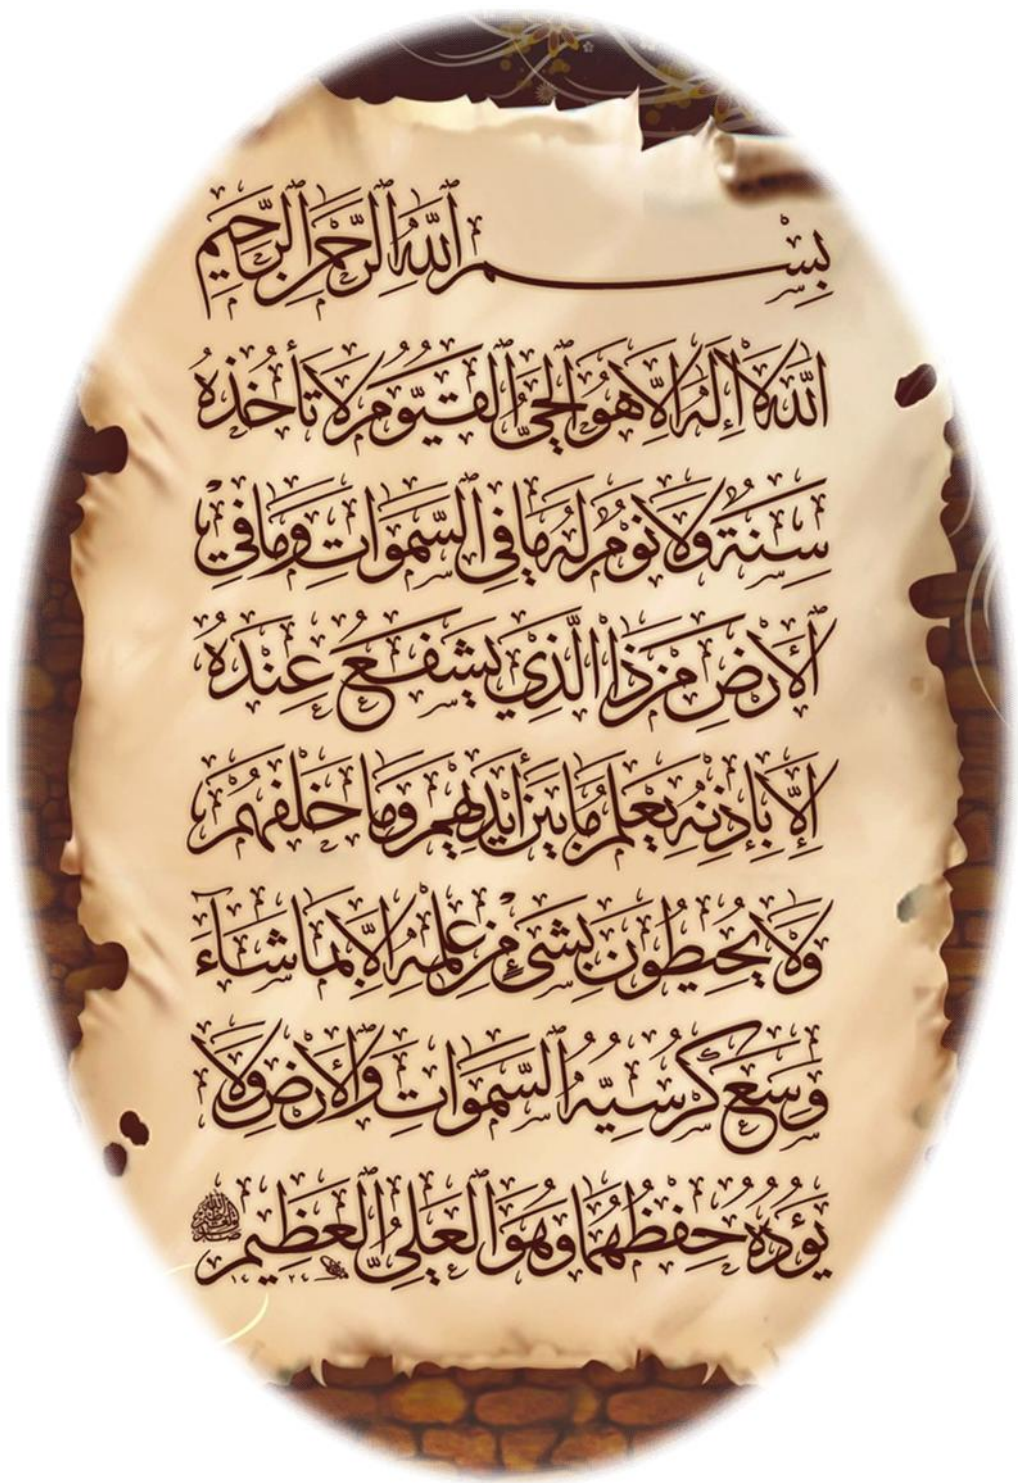 بِسْمِ ٱللَّهِ ٱلرَّحْمَٰنِ ٱلرَّحِيمِ
اللَّهُ لَا إِلَٰهَ إِلَّا هُوَ ٱلْحَيُّ ٱلْقَيُّومُ لَا تَأْخُذُهُ
سِنَةٌ وَلَا نَوْمٌ لَهُ مَا فِي ٱلسَّمَوَاتِ وَمَا فِي
ٱلْأَرْضِ مَنْ ذَا الَّذِي يَشْفَعُ عِنْدَهُ
إِلَّا بِإِذْنِهِ يَعْلَمُ مَا بَيْنَ أَيْدِيهِمْ وَمَا خَلْفَهُمْ
وَلَا يُحِيطُونَ بِشَيْءٍ مِنْ عِلْمِهِ إِلَّا بِمَا شَآءَ
وَسِعَ كُرْسِيُّهُ ٱلسَّمَوَاتِ وَٱلْأَرْضَ وَلَا
يَؤُدُهُ حِفْظُهُمَا وَهُوَ ٱلْعَلِيُّ ٱلْعَظِيمُ